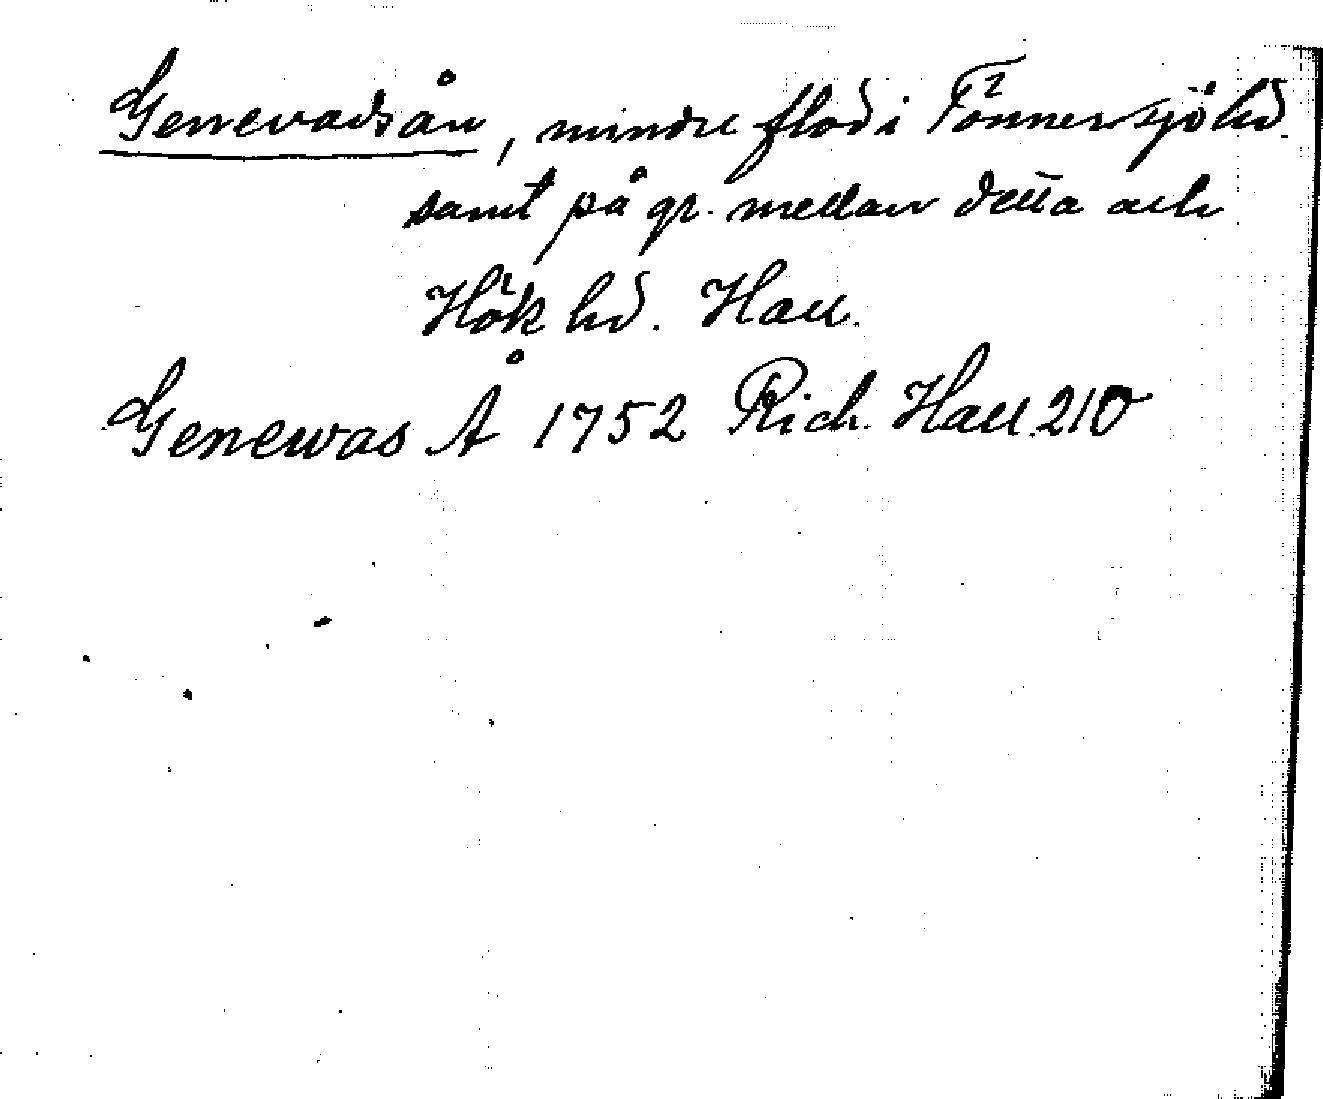 Genevadsån, mindre flod i Tönnersjö hd
samt på gr. mellan detta och
Hök hd. Hall.
Genewas Å 1752 Rich. Hall. 210